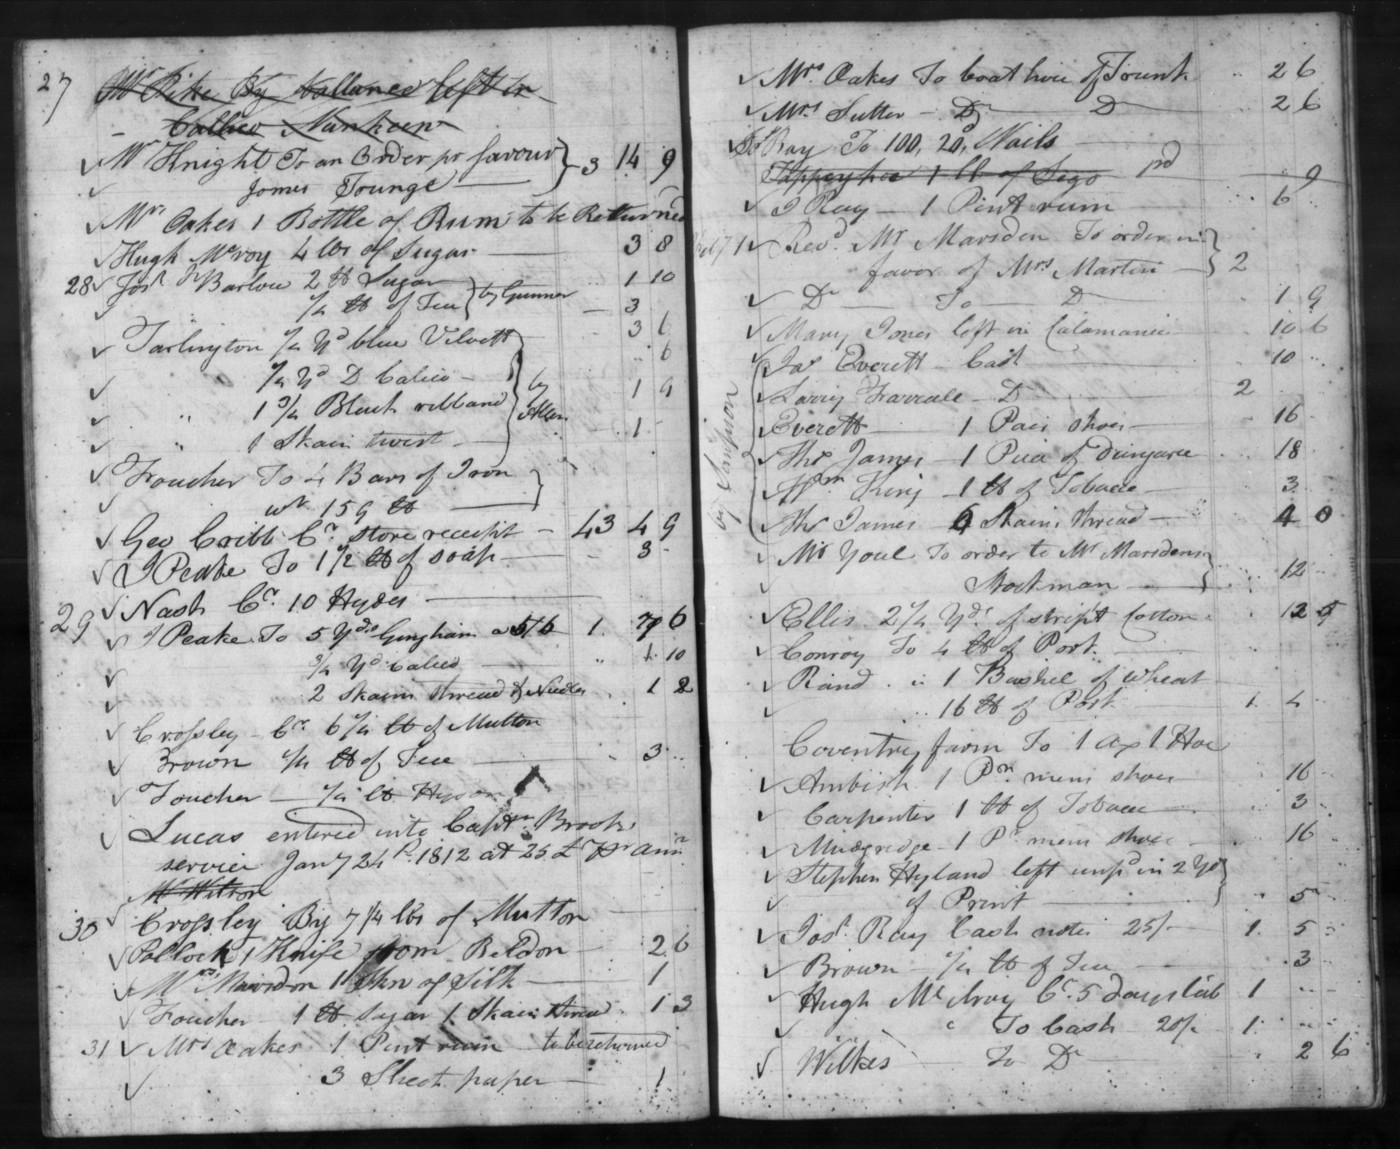 27 Mr Pike By ballance left in
Callico Nankeen
Mr Knight To an Order pr favour 3 14 9
James Tounge
Mrs Oakes 1 Bottle of Rum to be Returned
Hugh McVroy 4 lbs of Sugar 3 8
28 Josh Barlow 2 lb Sugar 1 10
1/2 lb of Tea by Gunner 3
Tarlington 1/4 Yd blue Velvett 3 1
1/4 Yd Do Calico 6
1 3/4 Black ribband by Allen 1 9
1 Skain twist 1
Foucher To 4 Bars of Iron
wt 159 lb
Geo Cribb Cr store receipt 43 4 9
J Peake To 1 1/2 lb of soap 3
Nash Cr 10 Hydes
29 J Peake To 5 Yds Gingham a 5/6 1 7 6
3/4 Yd Calico 1 10
2 skains thread & Needles 1 2
Crossley Cr 6 1/4 lb of Mutton
Brown 1/4 lb of Tea 3
Foucher 1/4 lb Hyson
Lucas entered into Captn Brooks
service Jany 24th 1812 at 25 £ Pr Ann
Mr Wilson
30 Crossley By 7 1/4 lbs of Mutton
Pollock 1 Knife from Beldon 2 6
Mrs Marsdon 1 Skn of Silk 1
Foucher 1 lb Sugar 1 Skain thread 1 3
31 Mrs Oakes 1 Pint rum to be returned
3 Sheet paper 1
Mrs Oakes To boat hire of Trunk 2 6
Mrs Sutter Do Do 2 6
Js Ray To 100, 20d, Nails
1 lb of Sego pd 9
J Ray 1 Pint rum 6
1 Revd Mr Marsden To order in
favor of Mrs Martin 2
Do To Do 1 9
Mary Jones left in Calamanco 10 6
by Sampson
Jas Everett Cash 10
Larry Farrale Do 2
Everett 1 Pair shoes 16
Thos James 1 Piece of Dungaree 18
Wm King 1 lb of Tobacco 3
Thos James 6 Skains thread 4 0
Mr Youl To order to Mr Marsdens
Stockman 12
Ellis 2 1/4 Yds of stript Cotton 12 5
Conroy To 4 lb of Pork
Rand 1 Bushel of wheat
16 lb of Pork 1 4
Coventry farm To 1 Ax 1 Hoe
Ambish 1 Pr mens shoes 16
Carpenter 1 lb of Tobacco 3
Mudgredge 1 Pr mens shoes 16
Stephen Hyland left unpd in 2 Yds
of Print 5
Josh Ray Cash notes 25/- 1 5
Brown 1/4 lb of Tea 3
Hugh McIlroy Cr 5 days lab 1
" To Cash 20/- 1
Wilkes To Do 2 6